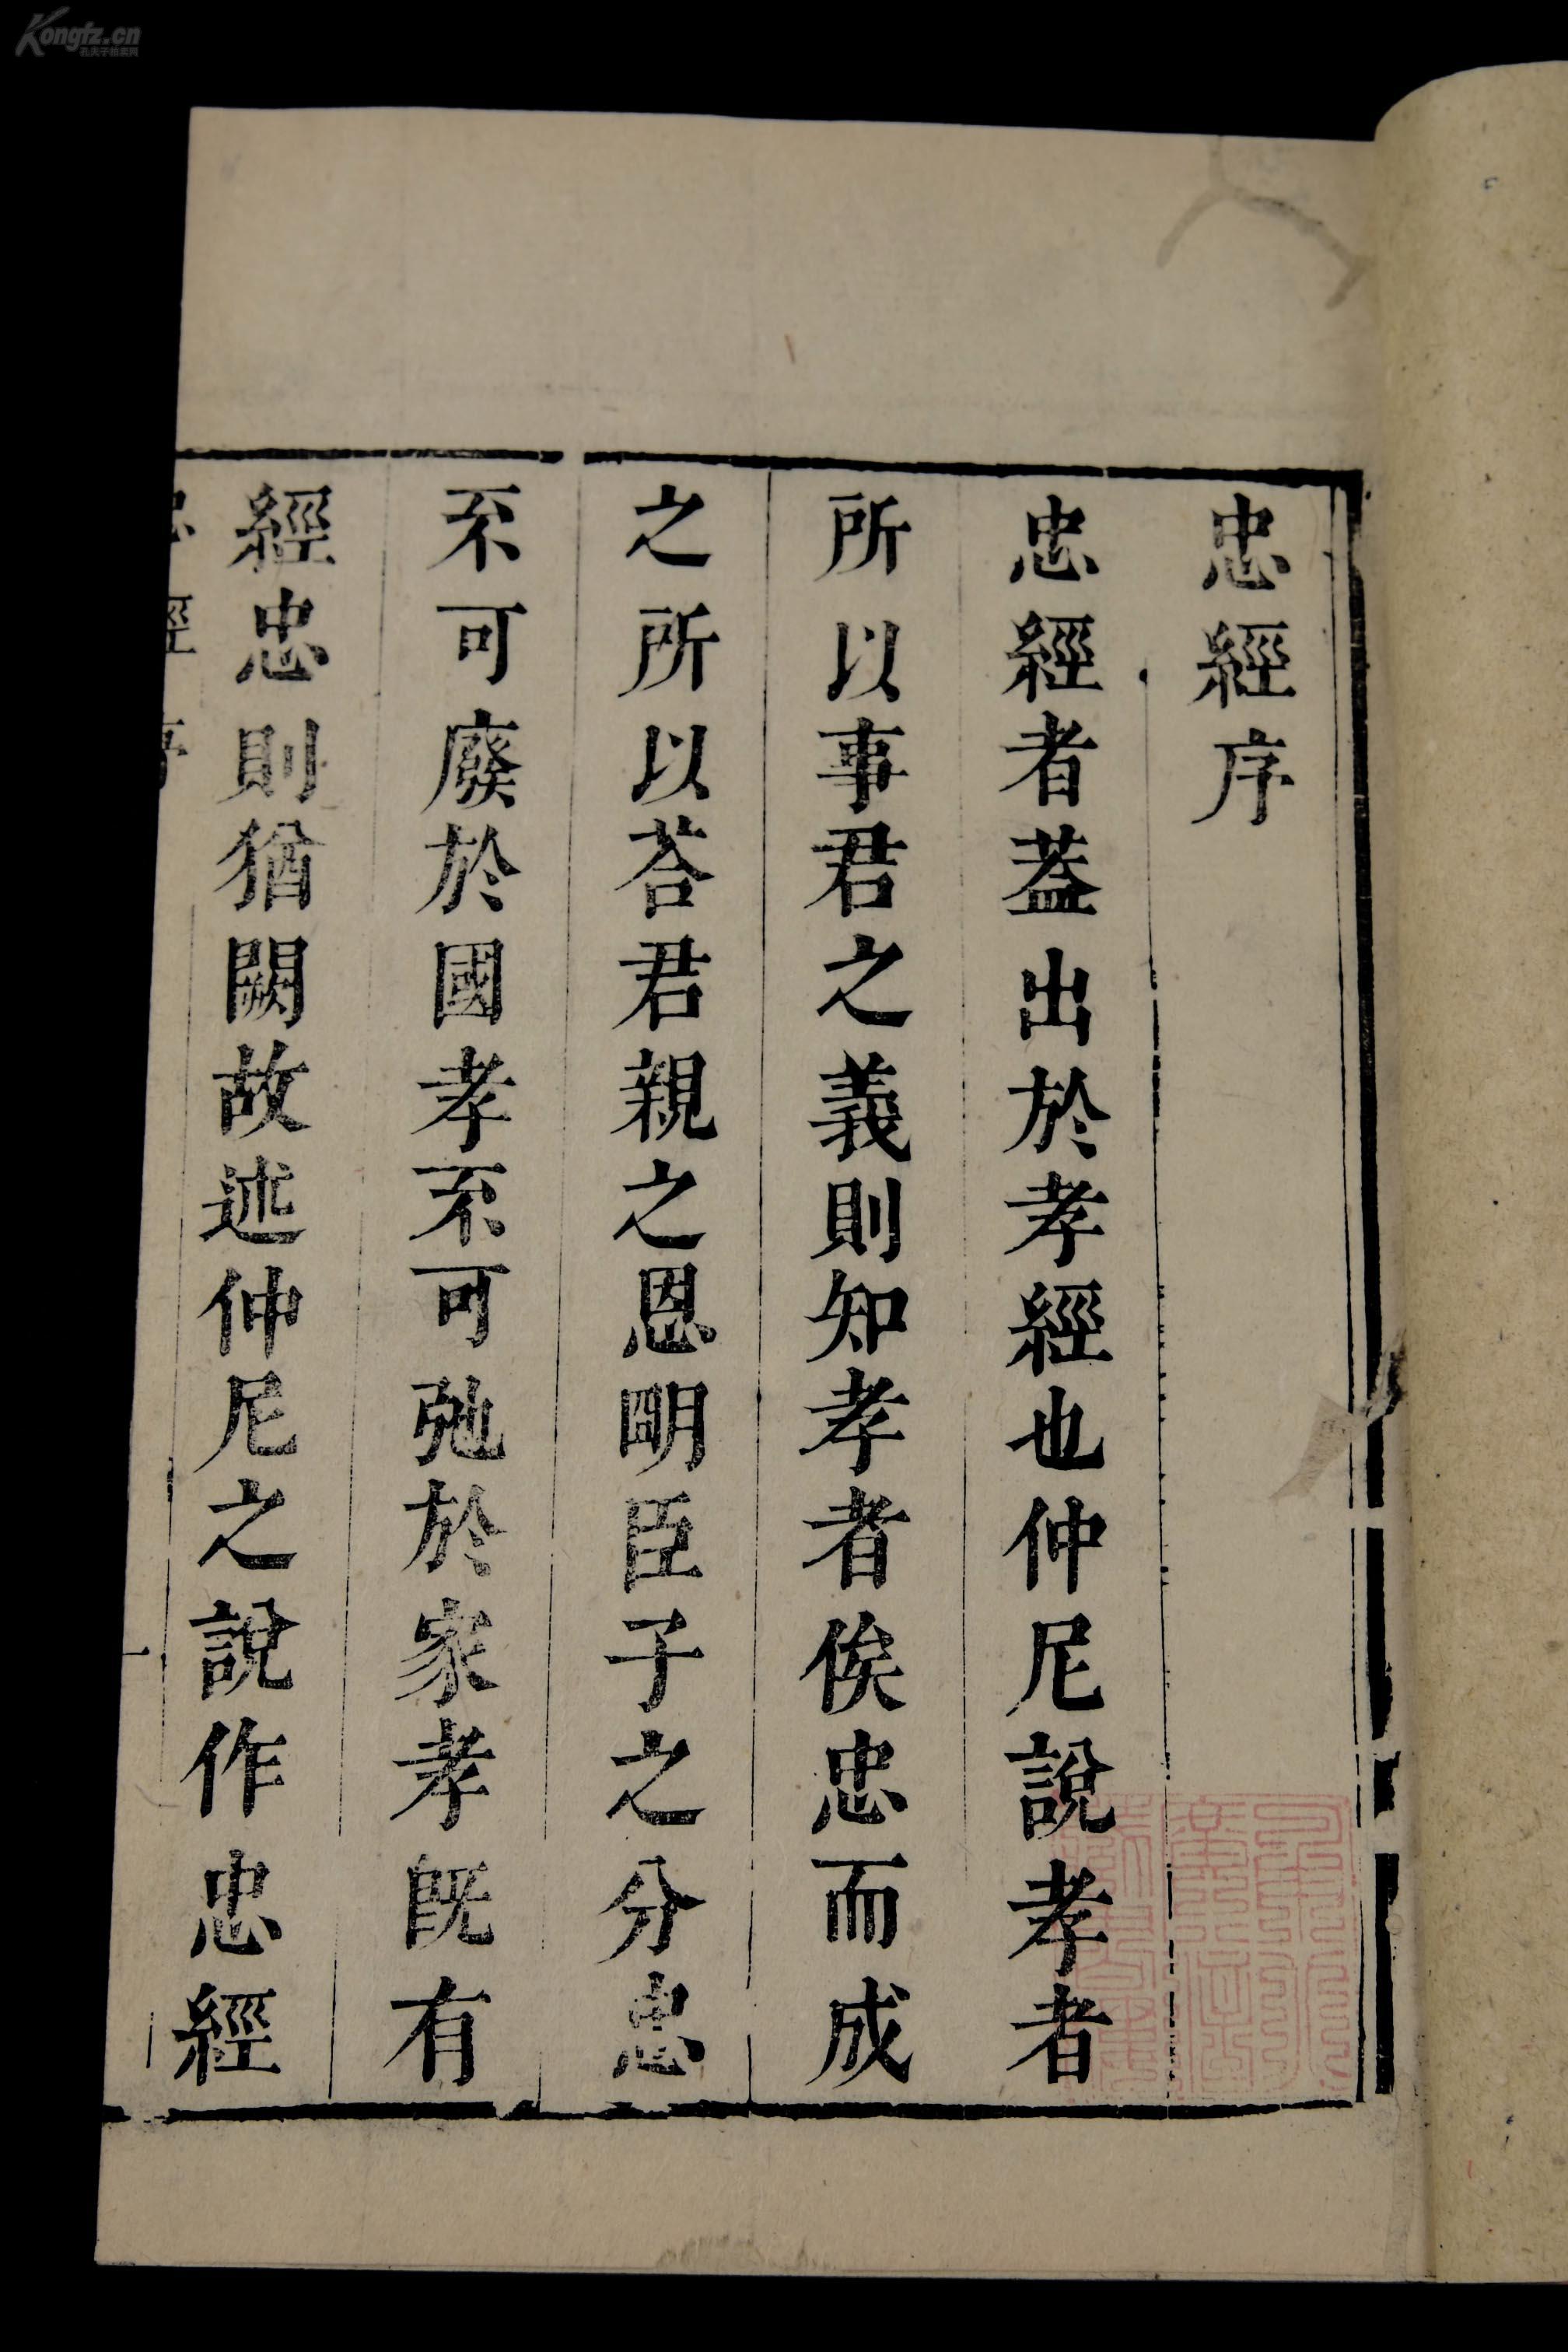 忠經序
忠經者葢出於孝經也仲尼說孝者
所以事君之義則知孝者俟忠而成
之所以荅君親之恩明臣子之分忠
不可廢於國孝不可弛於家孝旣有
經忠則猶闕故述仲尼之說作忠經
忠經序
一
Kongfz.cn
孔夫子拍卖网